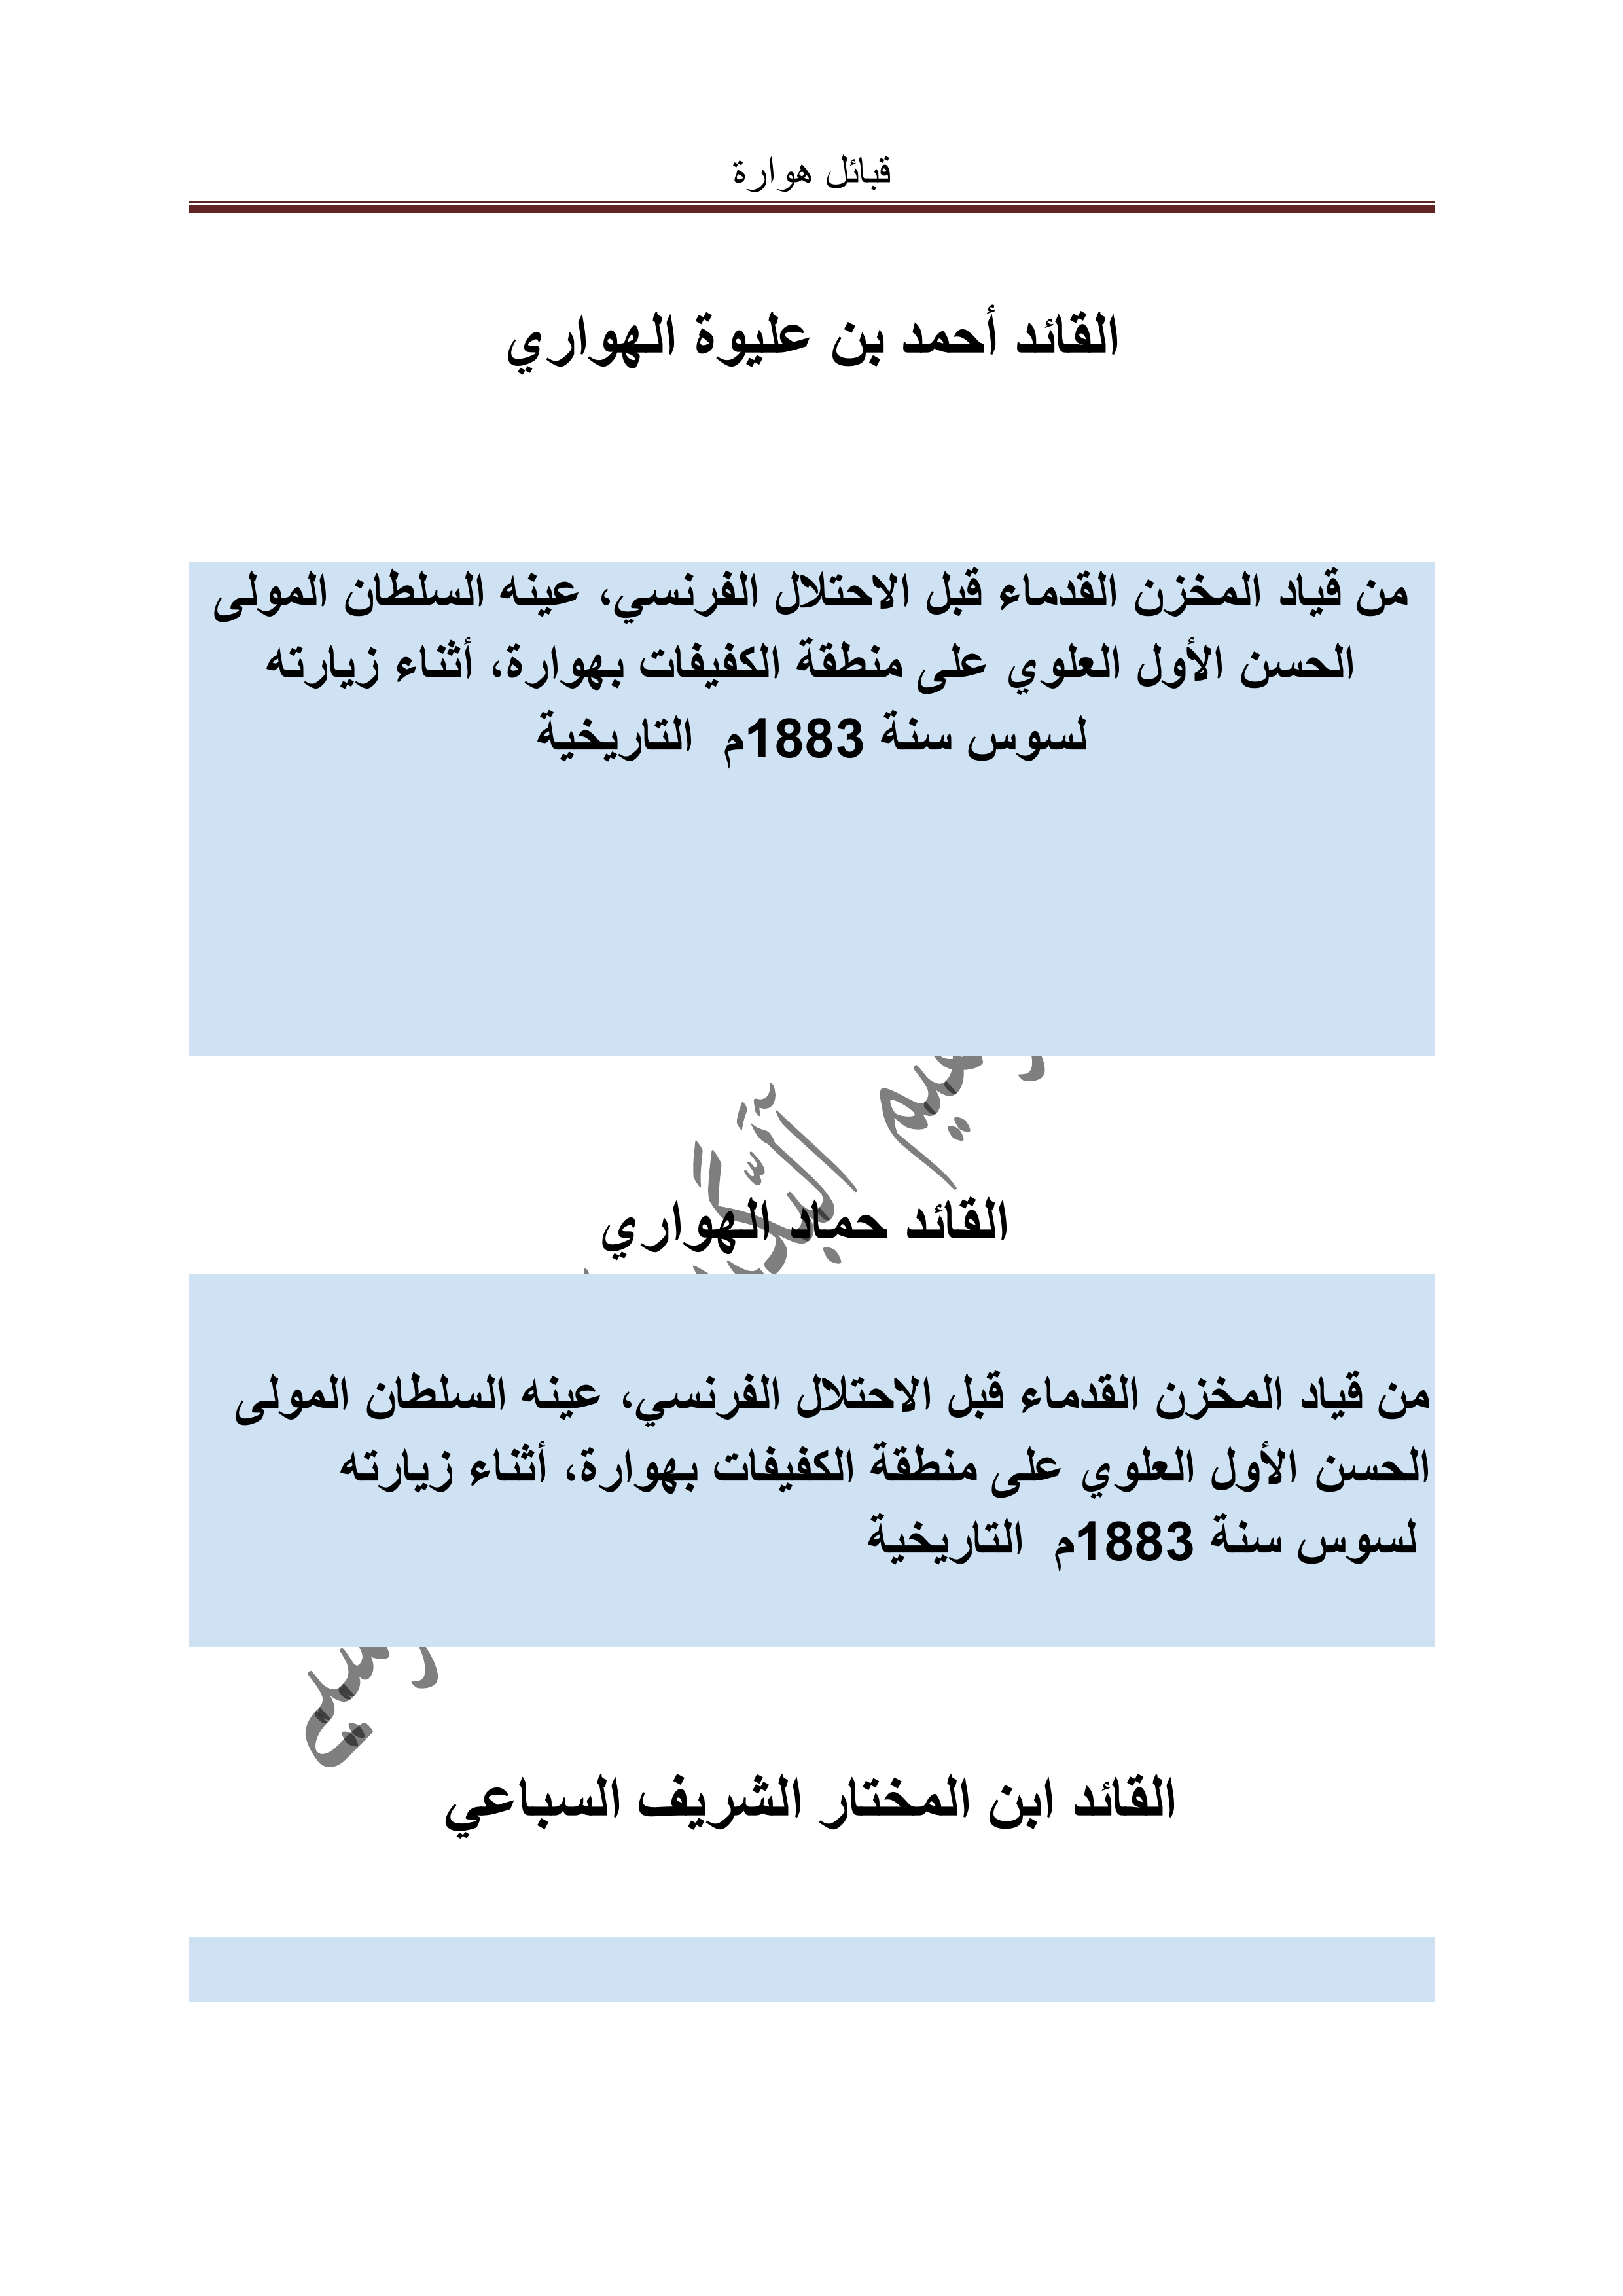 قبائل هوارة
القائد أحمد بن عليوة الهواري
من قياد المخزن القدماء قبل الاحتلال الفرنسي، عينه السلطان المولى
الحسن الأول العلوي على منطقة الكفيفات بهوارة، أثناء زيارته
لسوس سنة 1883م  التاريخية
القائد حماد الهواري
من قياد المخزن القدماء قبل الاحتلال الفرنسي، عينه السلطان المولى
الحسن الأول العلوي على منطقة الكفيفات بهوارة، أثناء زيارته
لسوس سنة 1883م  التاريخية
القائد ابن المختار الشريف السباعي